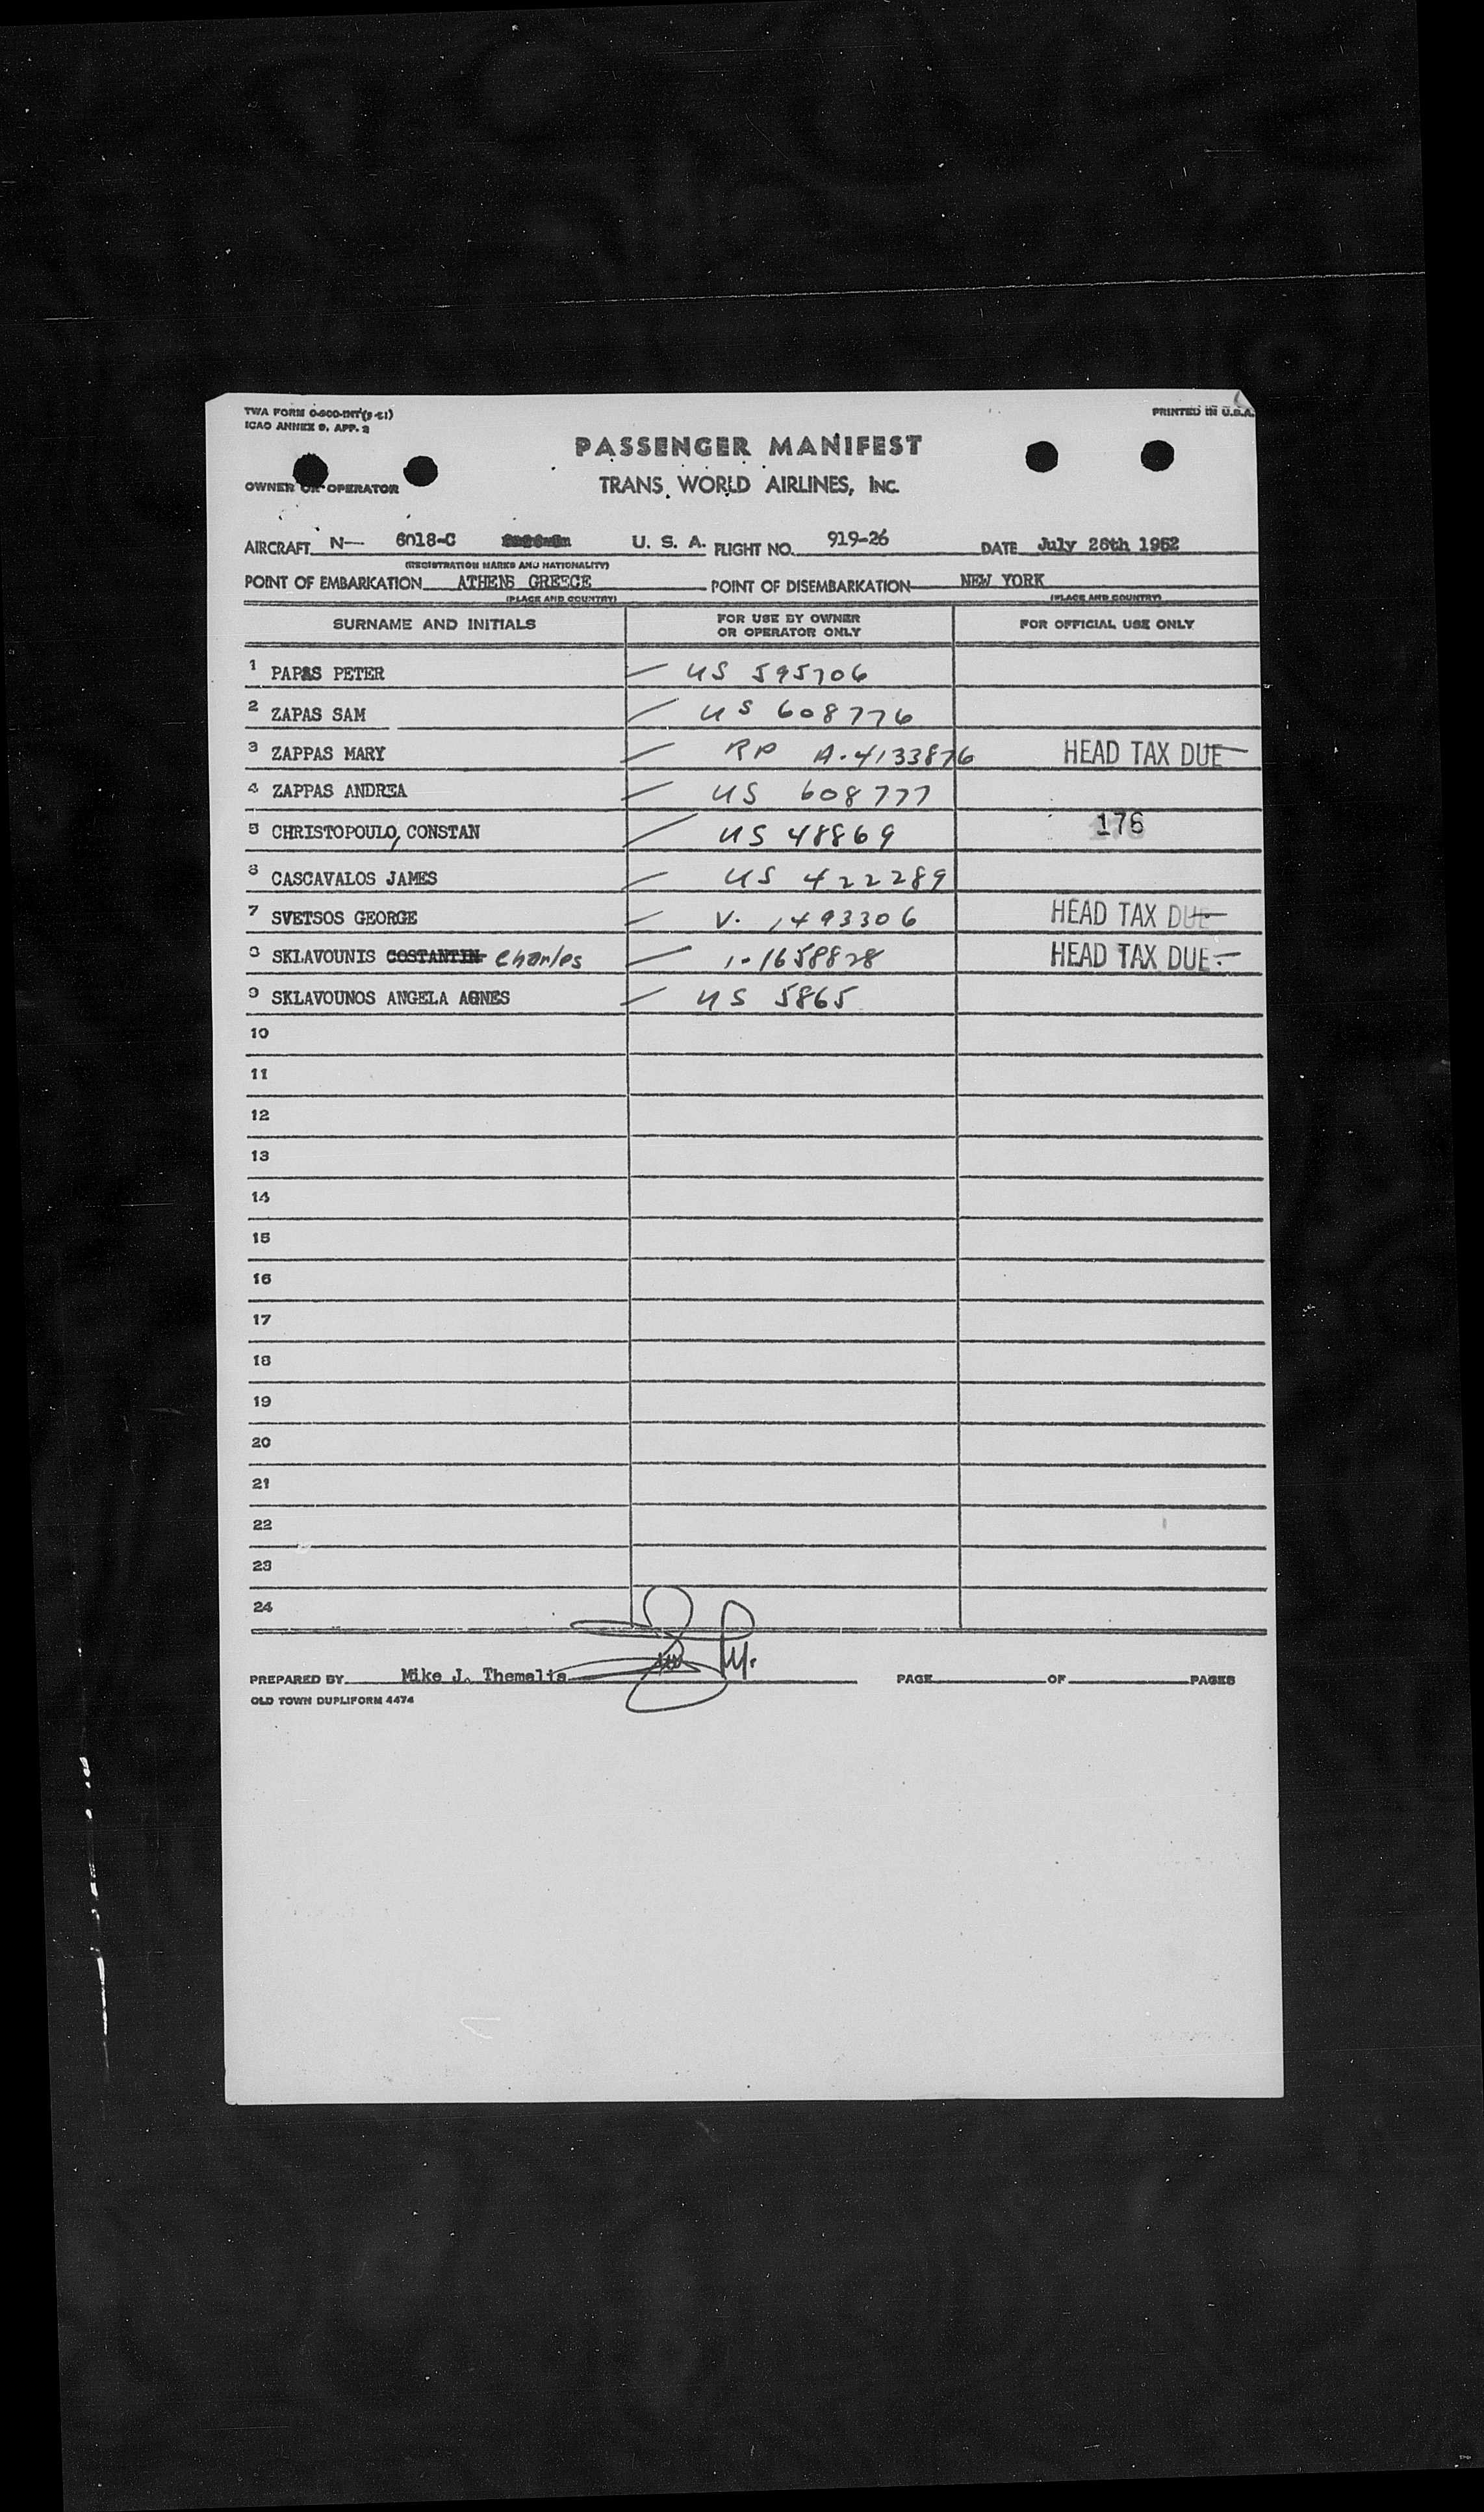 TWA FORM O-500-INT(5-51)
ICAO ANNEX 9, APP. 2
PRINTED IN U.S.A.
PASSENGER MANIFEST
OWNER OR OPERATOR TRANS WORLD AIRLINES, INC.
AIRCRAFT N— 6018-C U. S. A. FLIGHT NO. 919-26 DATE July 26th 1952
(REGISTRATION MARKS AND NATIONALITY)
POINT OF EMBARKATION ATHENS GREECE POINT OF DISEMBARKATION NEW YORK
(PLACE AND COUNTRY) (PLACE AND COUNTRY)
SURNAME AND INITIALS FOR USE BY OWNER OR OPERATOR ONLY FOR OFFICIAL USE ONLY
1 PAPAS PETER — US 595706
2 ZAPAS SAM — US 608776
3 ZAPPAS MARY — RP A-4133876 HEAD TAX DUE
4 ZAPPAS ANDREA — US 608777
5 CHRISTOPOULO, CONSTAN — US 48869 176
6 CASCAVALOS JAMES — US 422289
7 SVETSOS GEORGE — V. 1493306 HEAD TAX DUE
8 SKLAVOUNIS COSTANTIN Charles — 1-1658828 HEAD TAX DUE
9 SKLAVOUNOS ANGELA AGNES — US 5865
10
11
12
13
14
15
16
17
18
19
20
21
22
23
24
PREPARED BY Mike J. Themelis PAGE OF PAGES
OLD TOWN DUPLIFORM 4474